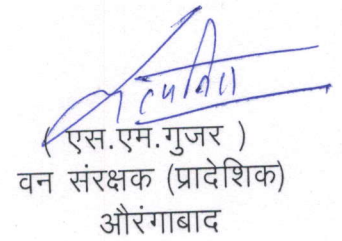 ( एस.एम.गुजर )
वन संरक्षक (प्रादेशिक)
औरंगाबाद